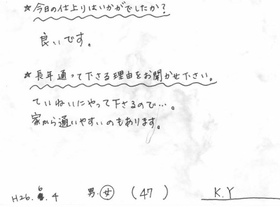 ★今日の仕上りはいかがでしたか?
良いです。
★長年通って下さる理由をお聞かせ下さい。
ていねいにやって下さるので…。
家から通いやすいのもあります。
H26. 6. 4 男・女 (47) K.Y